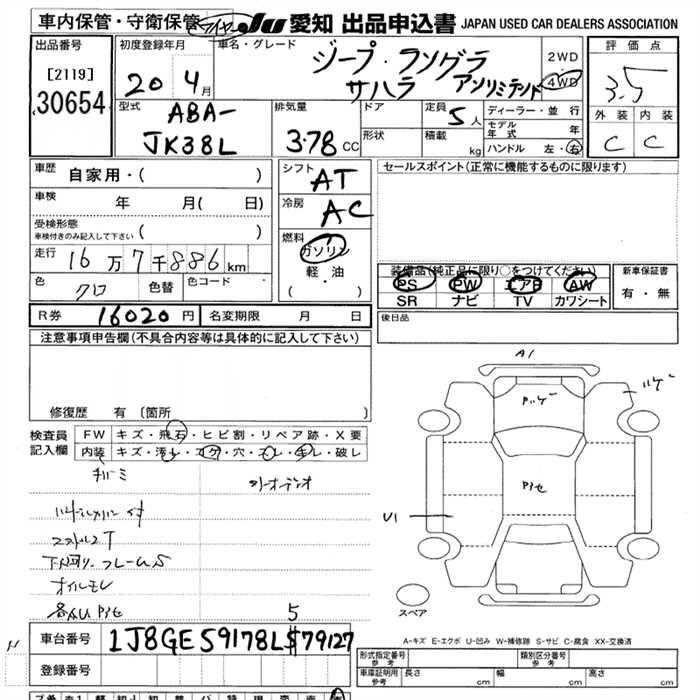 車内保管・守衛保管 JU 愛知 出品申込書 JAPAN USED CAR DEALERS ASSOCIATION
出品番号 初度登録年月 車名・グレード
[2119] 20 4月 ジープ・ラングラ 2WD 評価点
30654 サハラ アンリミテッド 4WD 3.5
型式 排気量 ドア 定員 5人 ディーラー・並行 外装 内装
ABA- モデル年式 年 C C
JK38L 3.78 CC 形状 積載 kg ハンドル 左・右
車歴 自家用・( ) シフト AT セールスポイント(正常に機能するものに限ります)
車検 年 月( 日) 冷房 AC
受検形態
車検付きのみ記入して下さい ( ) 燃料
走行 16万7千886km ガソリン
軽・油
( ・ )
装備品(純正品に限り○をつけてください) 新車保証書
色 クロ 色替 色コード PS PW エアB AW 有・無
SR ナビ TV カワシート
R券 16020円 名変期限 月 日 後日品
注意事項申告欄(不具合内容等は具体的に記入して下さい)
A1
修復歴 有 (箇所 )
検査員 FW キズ・飛石・ヒビ割・リペア跡・X要
記入欄 内装 キズ・汚レ・コゲ・穴・スレ・キレ・破レ
U1
下回り・フレームS
オイルモレ
スペア
A-キズ E-エクボ U-凹み W-補修跡 S-サビ C-腐食 XX-交換済
車台番号 1J8GE59178L 579127 5
登録番号
形式指定番号 参考 類別区分番号 参考
車庫証明用 参考 長さ cm 幅 cm 高さ cm